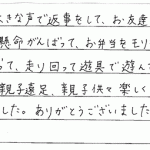 大きな声で返事をして、お友達
懸命がんばって、お弁当をモリ
って、走り回って遊具で遊んで
親子遠足、親子供々楽しく
した。ありがとうございました